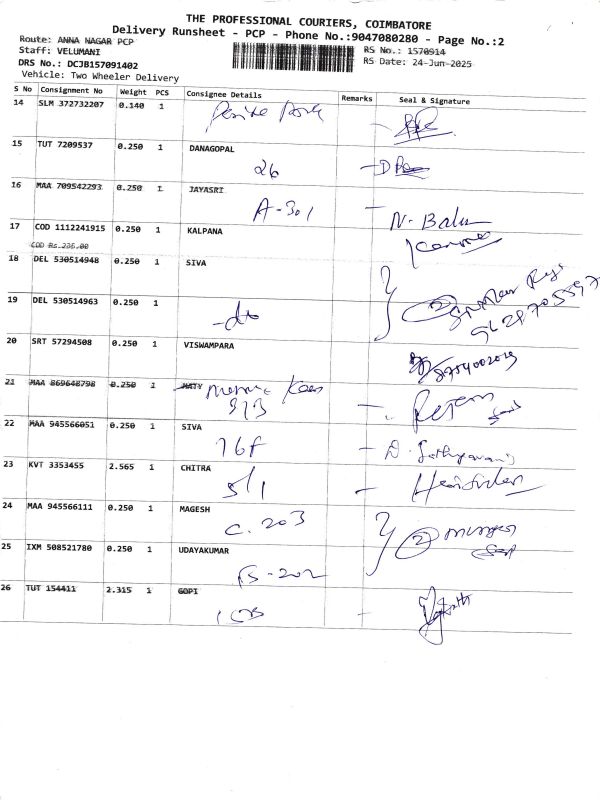 THE PROFESSIONAL COURIERS, COIMBATORE
Delivery Runsheet - PCP - Phone No.:9047080280 - Page No.:2
Route: ANNA NAGAR PCP
RS No.: 1570914
Staff: VELUMANI
RS Date: 24-Jun-2025
DRS No.: DCJB157091402
Vehicle: Two Wheeler Delivery
S No Consignment No Weight PCS Consignee Details Remarks Seal & Signature
14 SLM 372732207 0.140 1
15 TUT 7209537 0.250 1 DANAGOPAL
26
16 MAA 709542293 0.250 1 JAYASRI
A-301
N. Balu
17 COD 1112241915 0.250 1 KALPANA
COD Rs.235.00
18 DEL 530514948 0.250 1 SIVA
19 DEL 530514963 0.250 1
-do
2
20 SRT 57294508 0.250 1 VISWAMPARA
21 MAA 869648798 0.250 1 MATY
513
22 MAA 945566051 0.250 1 SIVA
76F
23 KVT 3353455 2.565 1 CHITRA
5/1
24 MAA 945566111 0.250 1 MAGESH
C. 203
2
25 IXM 508521780 0.250 1 UDAYAKUMAR
26 TUT 154411 2.315 1 GOPI